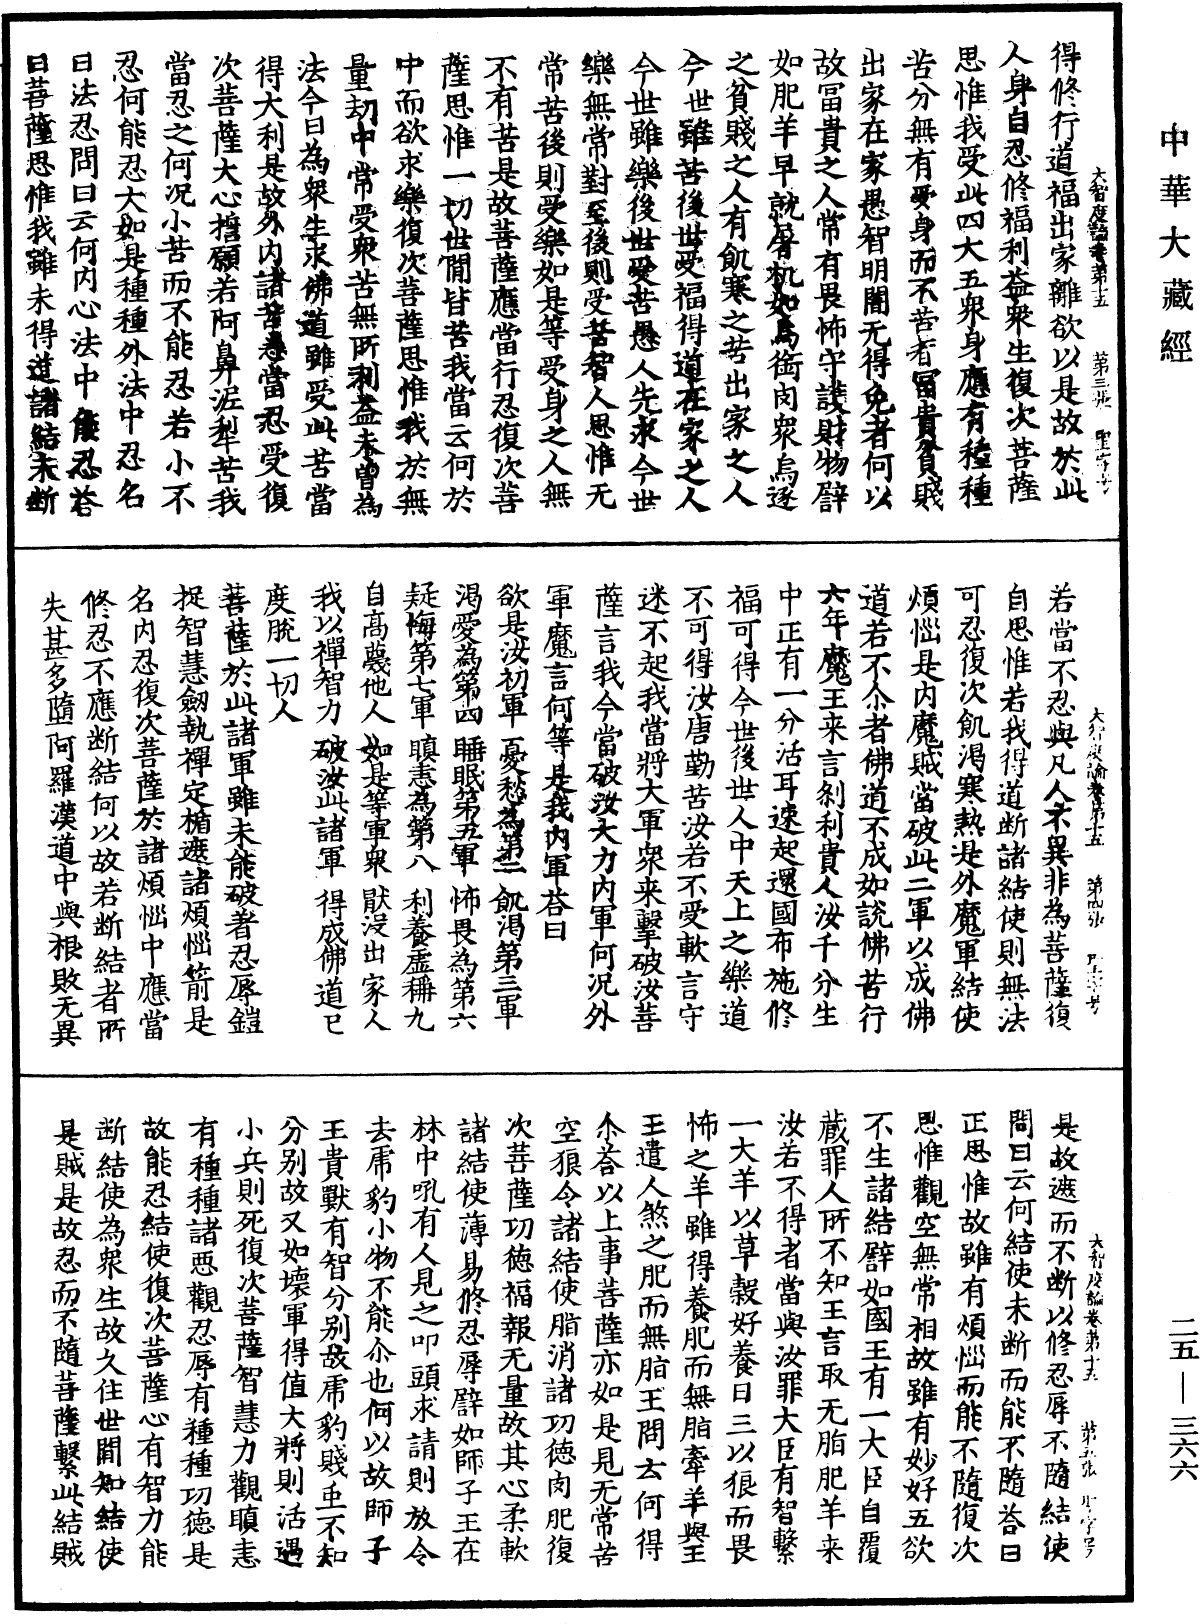 中華大藏經
二五—三六六
大智度論卷第十五 第三張 聖字号
得修行道福出家離欲以是故於此
人身自忍修福利益衆生復次菩薩
思惟我受此四大五衆身應有種種
苦分無有受身而不苦者冨貴貧賤
出家在家愚智明闇无得免者何以
故冨貴之人常有畏怖守護財物譬
如肥羊早就屠机如烏銜肉衆烏逐
之貧賤之人有飢寒之苦出家之人
今世雖苦後世受福得道在家之人
今世雖樂後世受苦愚人先求今世
樂無常對至後則受苦智人思惟无
常苦後則受樂如是等受身之人無
不有苦是故菩薩應當行忍復次菩
薩思惟一切世閒皆苦我當云何於
中而欲求樂復次菩薩思惟我於無
量劫中常受衆苦無所利益未曽為
法今日為衆生求佛道雖受此苦當
得大利是故外内諸苦悉當忍受復
次菩薩大心擔願若阿鼻泥犁苦我
當忍之何況小苦而不能忍若小不
忍何能忍大如是種種外法中忍名
曰法忍問曰云何内心法中能忍荅
曰菩薩思惟我雖未得道諸結未断
大智度論卷第十五 第四張
若當不忍與凡人不異非為菩薩復
自思惟若我得道断諸結使則無法
可忍復次飢渴寒熱是外魔軍結使
煩惱是内魔賊當破此二軍以成佛
道若不尒者佛道不成如說佛苦行
六年魔王来言刹利貴人汝千分生
中正有一分活耳速起還國布施修
福可得今世後世人中天上之樂道
不可得汝唐勤苦汝若不受軟言守
迷不起我當將大軍衆来擊破汝菩
薩言我今當破汝大力内軍何況外
軍魔言何等是我内軍荅曰
欲是汝初軍 憂愁為第二 飢渴第三軍
渴愛為第四 睡眠第五軍 怖畏為第六
疑悔第七軍 瞋恚為第八 利養虛稱九
自高蔑他人 如是等軍衆 猒没出家人
我以禪智力 破汝此諸軍 得成佛道已
度脫一切人
菩薩於此諸軍雖未能破著忍辱鎧
捉智慧劒執禪定楯遮諸煩惱箭是
名内忍復次菩薩於諸煩惱中應當
修忍不應断結何以故若断結者所
失甚多隨阿羅漢道中與根敗无異
大智度論卷第十五 第五張
是故遮而不断以修忍辱不隨結使
問曰云何結使未断而能不隨荅曰
正思惟故雖有煩惱而能不隨復次
思惟觀空無常相故雖有妙好五欲
不生諸結譬如國王有一大臣自覆
蔵罪人所不知王言取无脂肥羊来
汝若不得者當與汝罪大臣有智繫
一大羊以草穀好養日三以狼而畏
怖之羊雖得養肥而無脂牽羊與王
王遣人煞之肥而無脂王問云何得
尒荅以上事菩薩亦如是見无常苦
空狼令諸結使脂消諸功徳肉肥復
次菩薩功徳福報无量故其心柔軟
諸結使薄易修忍辱譬如師子王在
林中吼有人見之叩頭求請則放令
去虎豹小物不能尒也何以故師子
王貴獸有智分別故虎豹賤虫不知
分別故又如壊軍得值大將則活遇
小兵則死復次菩薩智慧力觀瞋恚
有種種諸惡觀忍辱有種種功徳是
故能忍結使復次菩薩心有智力能
断結使為衆生故久住世間知結使
是賊是故忍而不隨菩薩繫此結賊